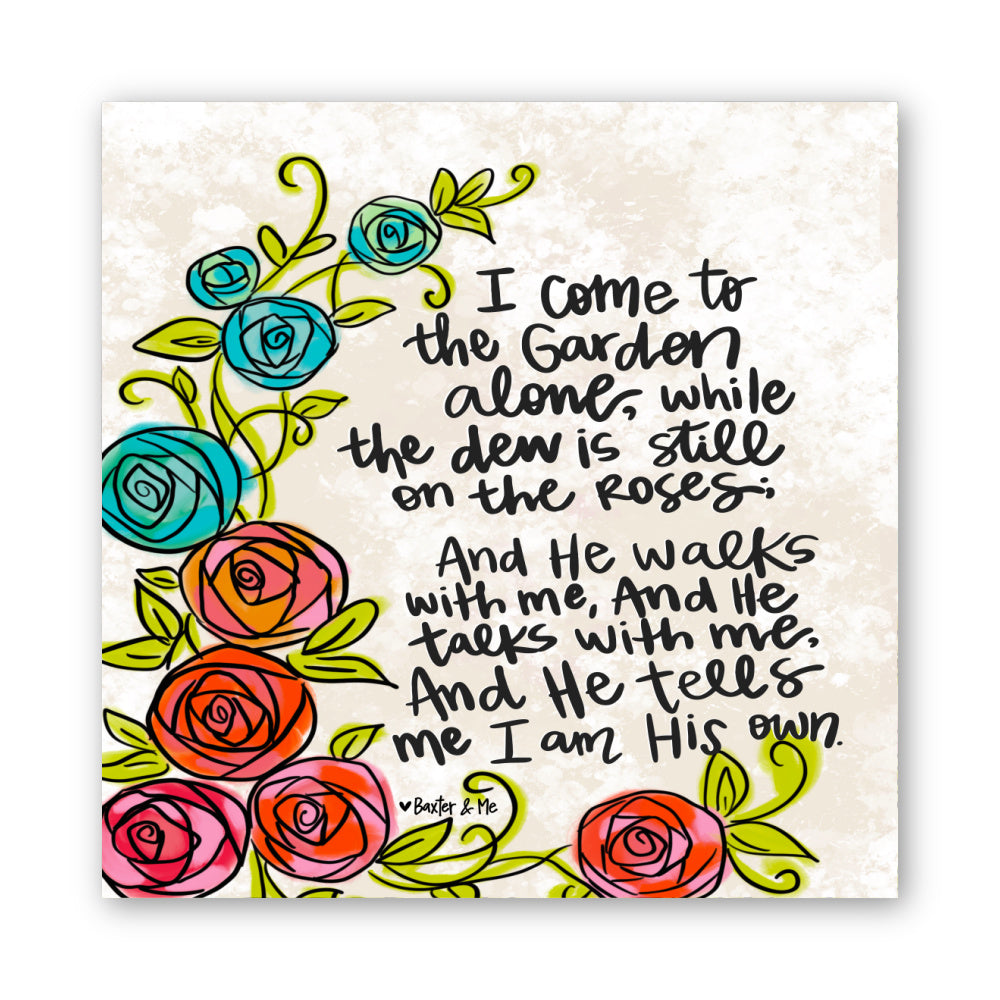 I come to
the Garden
alone, while
the dew is still
on the Roses;
And He walks
with me, And He
talks with me,
And He tells
me I am His own.
♥ Baxter & Me